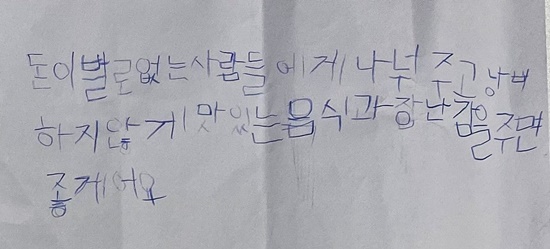 돈이별로없는사람들에게나눠 주고낭비
하지않게맛있는음식과장난감을주면
좋게어요